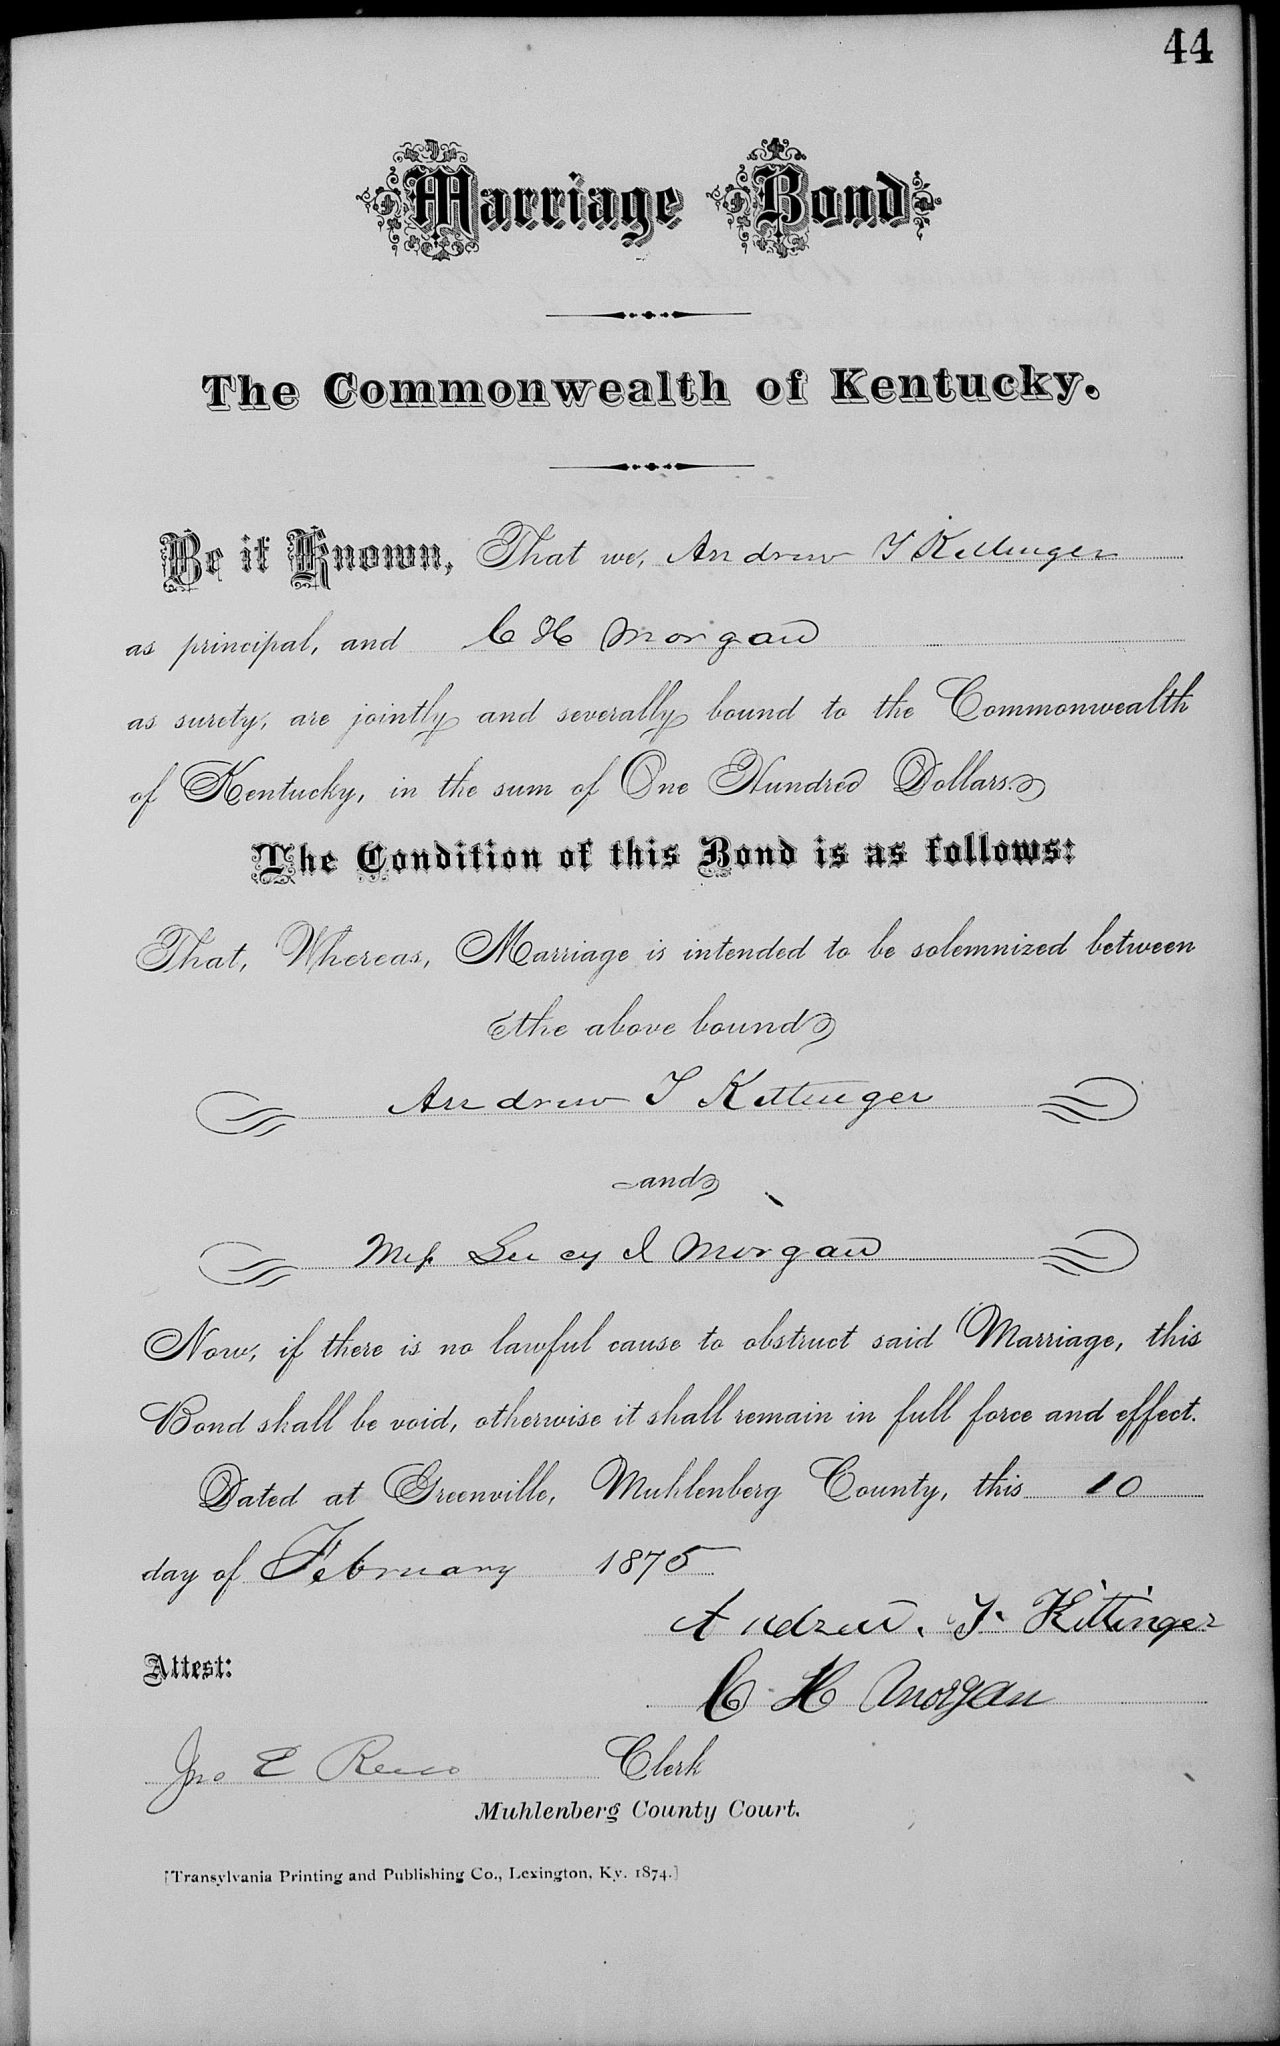 44
Marriage Bond.
The Commonwealth of Kentucky.
Be it Known, That we, Andrew J Kittinger
as principal, and C H Morgan
as surety, are jointly and severally bound to the Commonwealth
of Kentucky, in the sum of One Hundred Dollars.
The Condition of this Bond is as follows:
That, Whereas, Marriage is intended to be solemnized between
the above bound
Andrew J Kittinger
and
Miss Lucy I Morgan
Now, if there is no lawful cause to obstruct said Marriage, this
Bond shall be void, otherwise it shall remain in full force and effect.
Dated at Greenville, Muhlenberg County, this 10
day of February 1875
Andrew. J. Kittinger
Attest:
C H Morgan
Jno E Reno Clerk
Muhlenberg County Court.
[Transylvania Printing and Publishing Co., Lexington, Ky. 1874.]